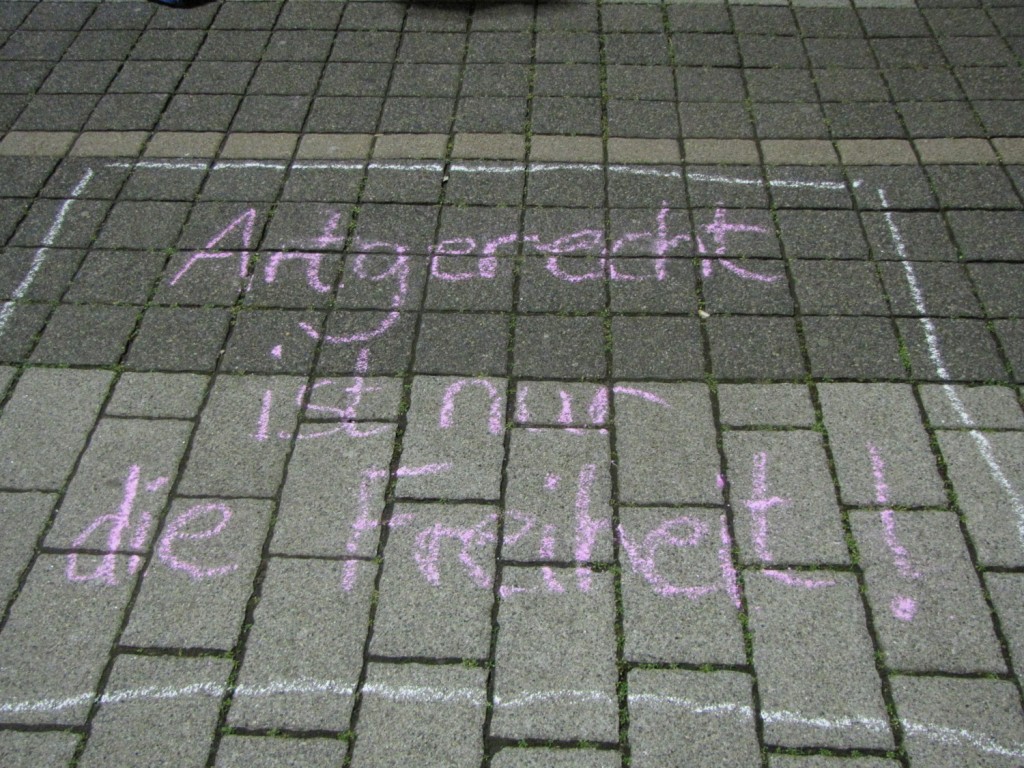 Artgerecht
ist nur
die Freiheit!